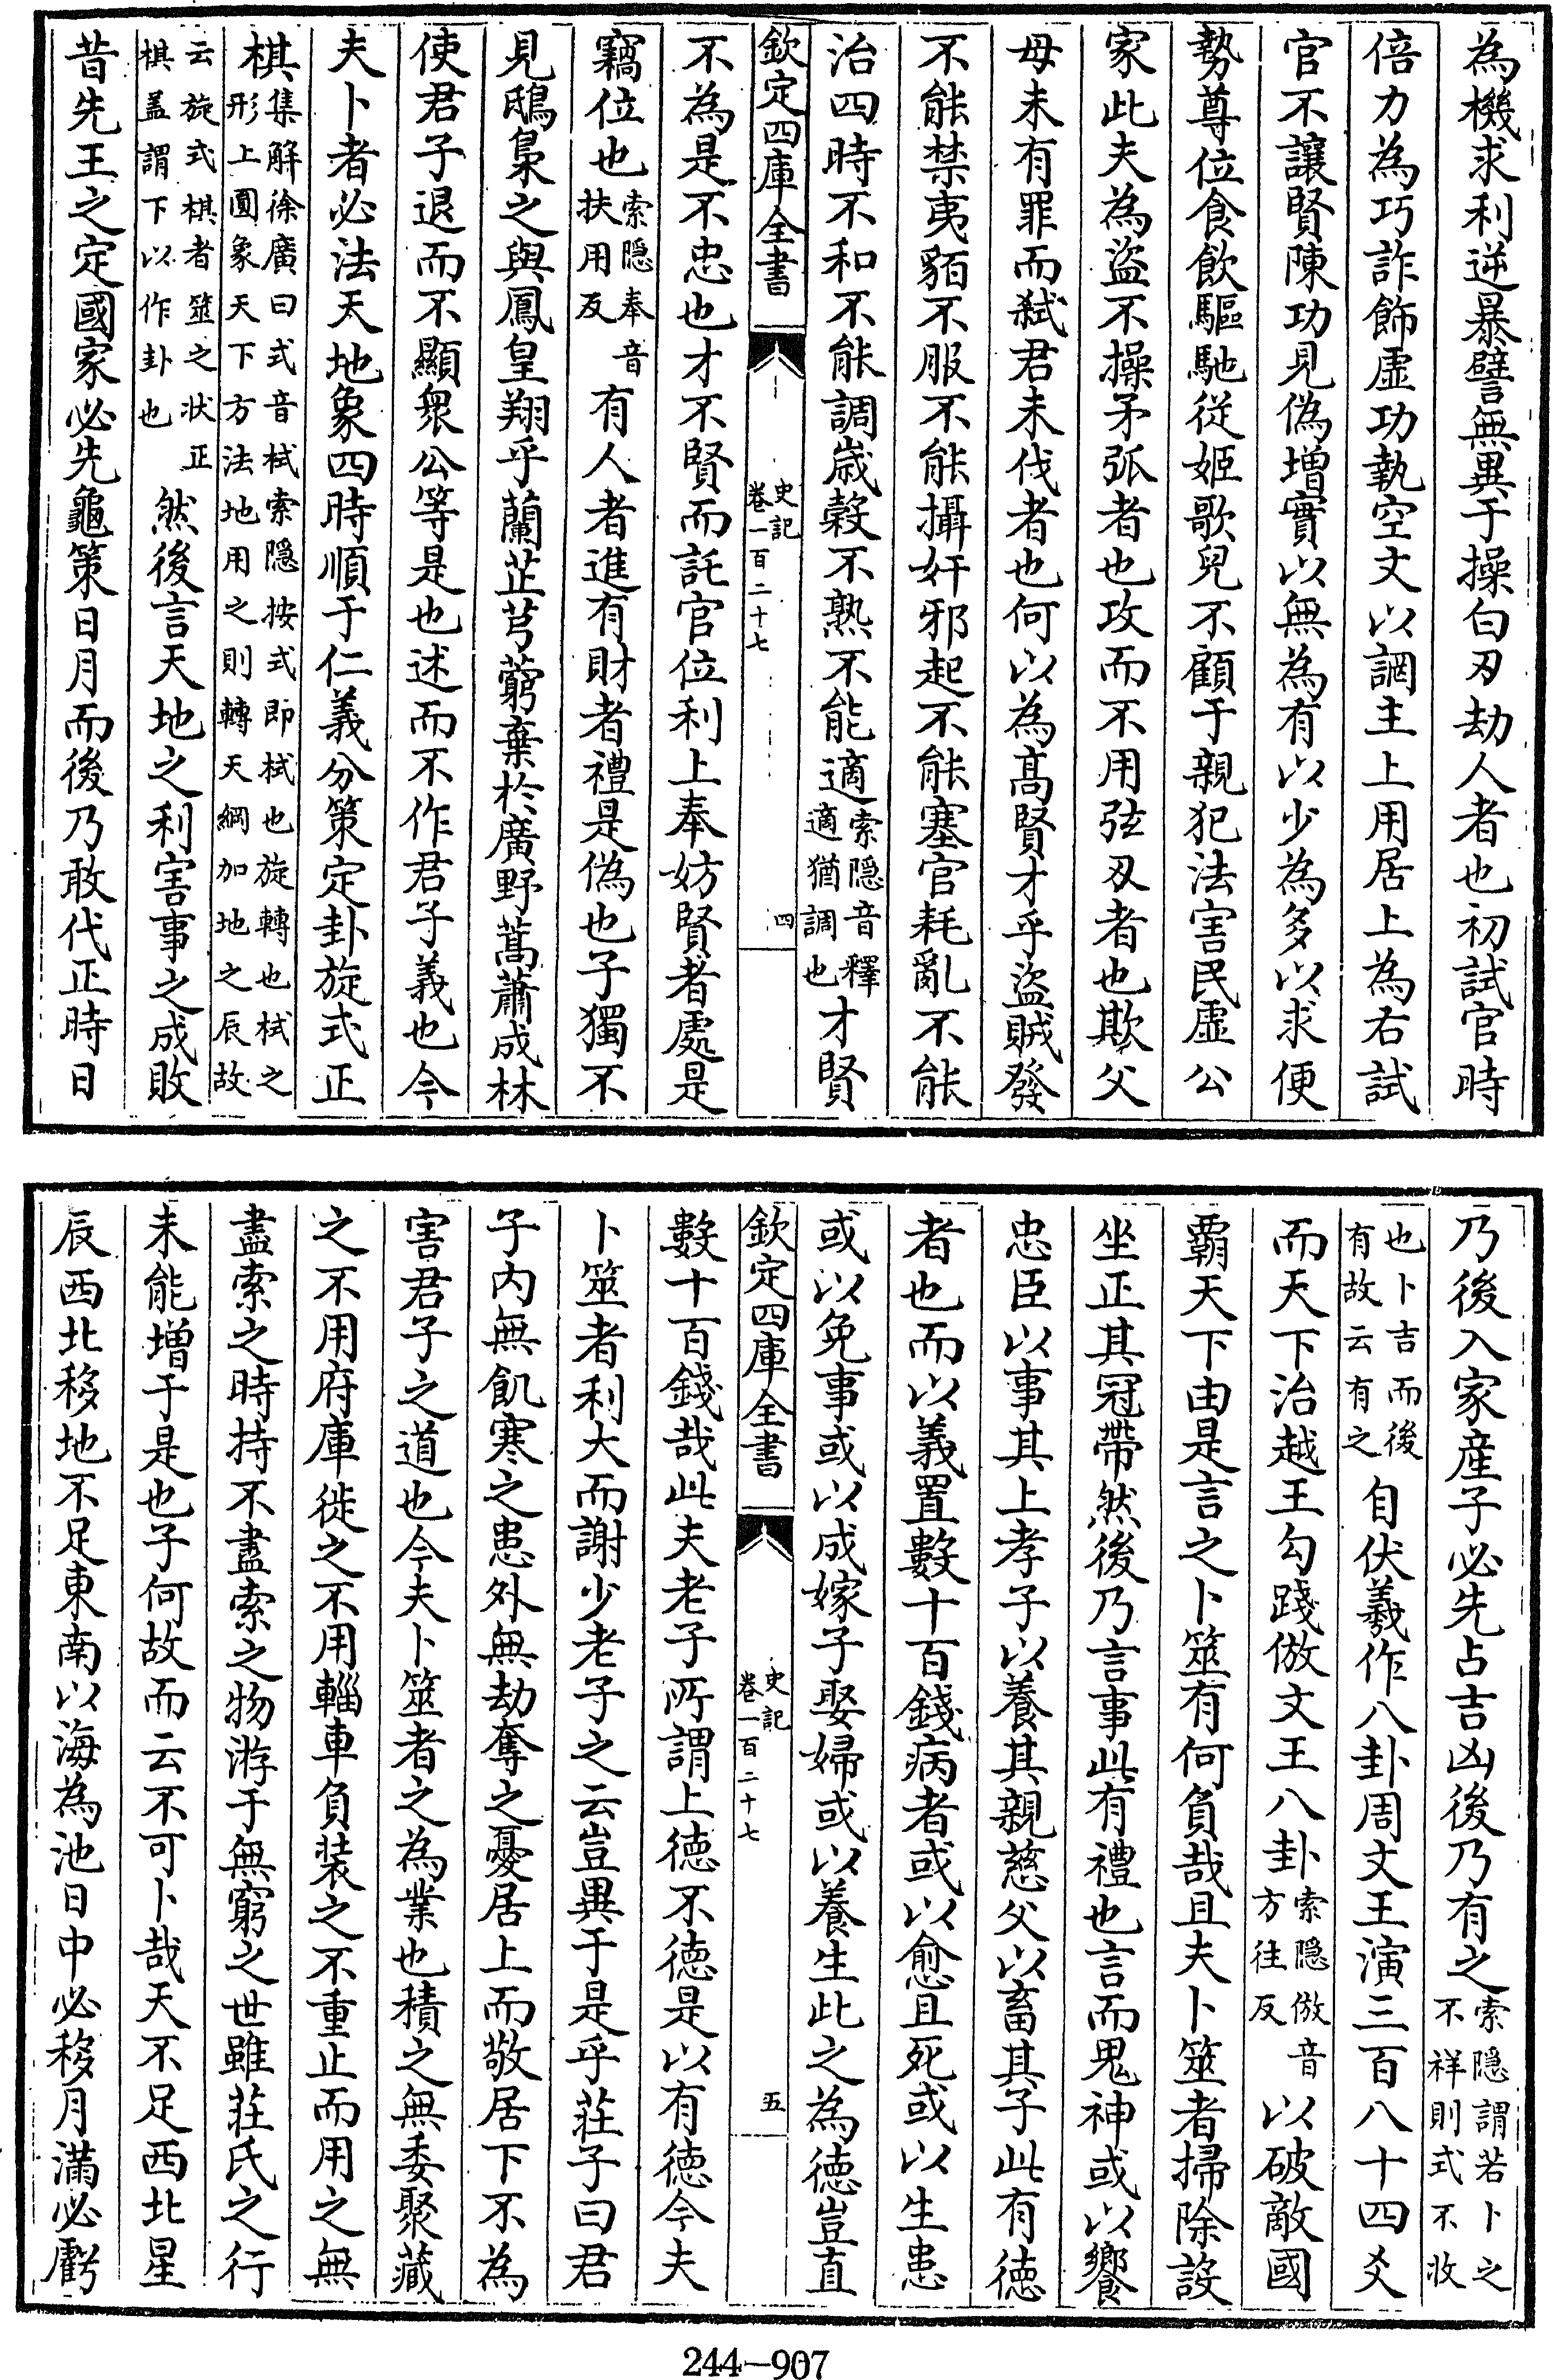 為機求利逆暴譬無異于操白刃劫人者也初試官時
倍力為巧詐飾虚功執空文以誷主上用居上為右試
官不讓賢陳功見偽增實以無為有以少為多以求便
勢尊位食飲驅馳從姬歌兒不顧于親犯法害民虚公
家此夫為盜不操矛弧者也攻而不用弦刃者也欺父
母未有罪而弑君未伐者也何以為髙賢才乎盜賊發
不能禁夷貊不服不能攝奸邪起不能塞官耗亂不能
治四時不和不能調嵗榖不熟不能適索隱音釋適猶調也才賢
欽定四庫全書
史記
卷一百二十七
四
不為是不忠也才不賢而託官位利上奉妨賢者處是
竊位也索隱奉音扶用反有人者進有財者禮是偽也子獨不
見鴟梟之與鳳皇翔乎蘭芷芎藭棄於廣野蒿蕭成林
使君子退而不顯衆公等是也述而不作君子義也今
夫卜者必法天地象四時順于仁義分策定卦旋式正
棋集解徐廣曰式音栻索隱按式即栻也旋轉也栻之形上圓象天下方法地用之則轉天綱加地之辰故
云旋式棋者筮之狀正棋蓋謂下以作卦也然後言天地之利害事之成敗
昔先王之定國家必先龜策日月而後乃敢代正時日
乃後入家産子必先占吉凶後乃有之索隱謂若卜之不祥則式不收
也卜吉而後有故云有之自伏羲作八卦周文王演三百八十四爻
而天下治越王勾踐倣文王八卦索隱倣音方往反以破敵國
覇天下由是言之卜筮有何負哉且夫卜筮者掃除設
坐正其冠帶然後乃言事此有禮也言而鬼神或以饗
忠臣以事其上孝子以養其親慈父以畜其子此有徳
者也而以義置數十百錢病者或以愈且死或以生患
或以免事或以成嫁子娶婦或以養生此之為徳豈直
欽定四庫全書
史記
卷一百二十七
五
數十百錢哉此夫老子所謂上徳不徳是以有徳今夫
卜筮者利大而謝少老子之云豈異于是乎莊子曰君
子内無飢寒之患外無劫奪之憂居上而敬居下不為
害君子之道也今夫卜筮者之為業也積之無委聚藏
之不用府庫徙之不用輜車負装之不重止而用之無
盡索之時持不盡索之物游于無窮之世雖莊氏之行
未能增于是也子何故而云不可卜哉天不足西北星
辰西北移地不足東南以海為池日中必移月滿必虧
244-907